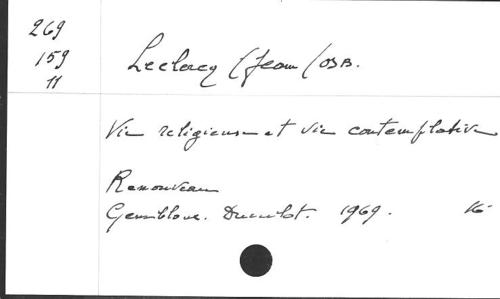 269
159
11
Leclercq (Jean) OSB.
Vie religieuse et vie contemplative
Renouveau
Gembloux. Duculot. 1969. 16-